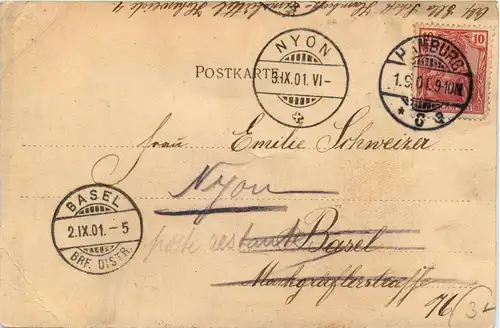 NYON
3.IX.01. VI-
POSTKARTE
HAMBURG
1.9.01. 9-10N.
10
Frau Emilie Schweizer
Nyon
BASEL
2.IX.01.-5
BRF. DISTR.
poste restante
Basel
Markgräflerstrasse
76
3